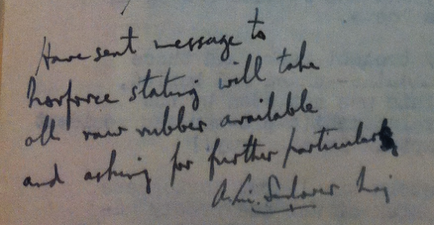 Have sent message to
horforce stating will take
all raw rubber available
and asking for further particulars
Maj